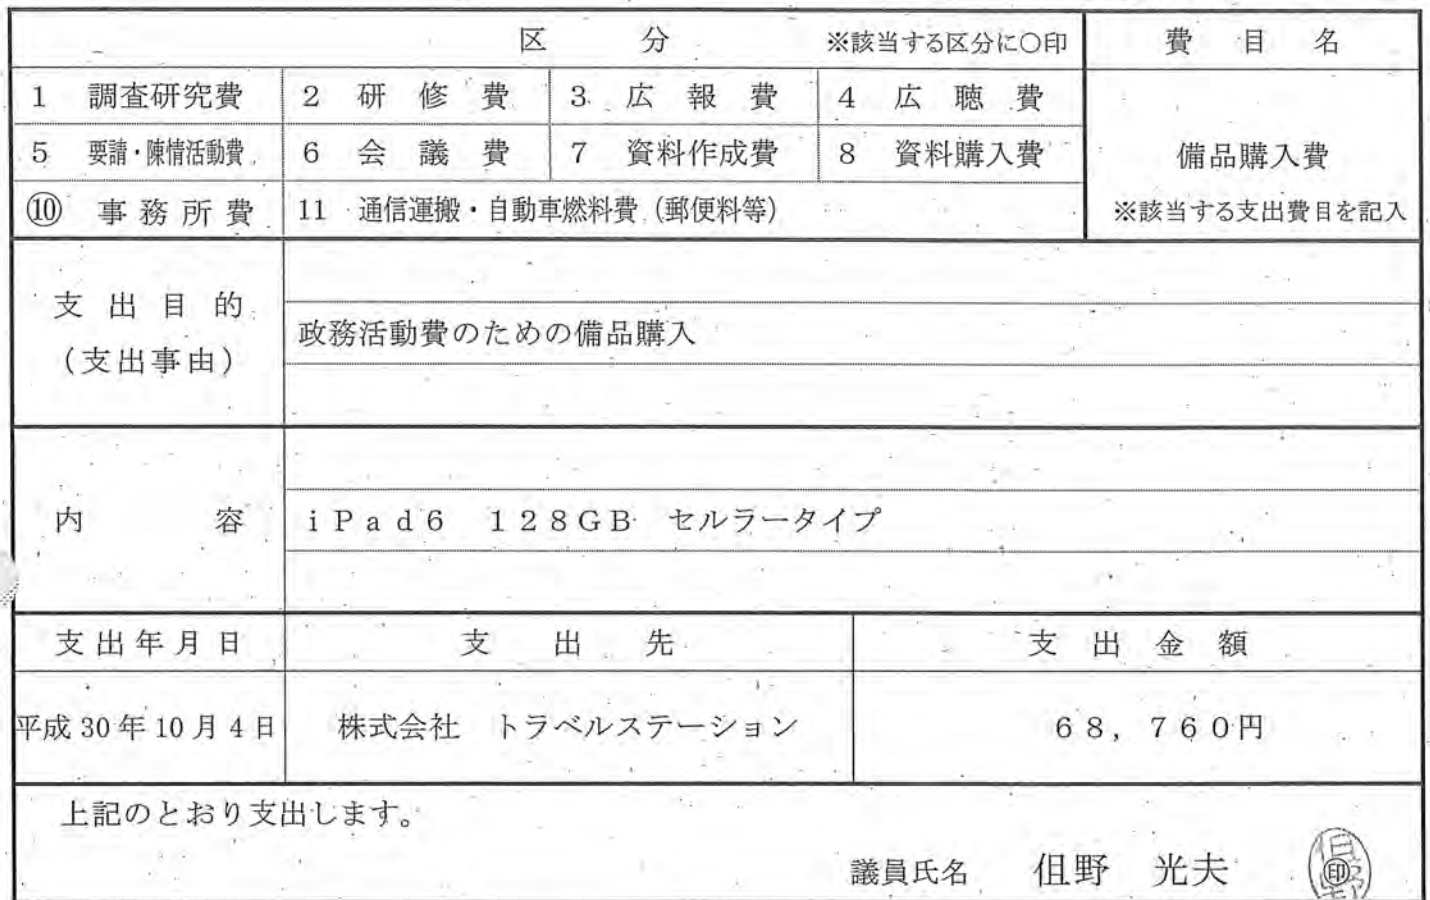 区 分 ※該当する区分に○印 費 目 名
1 調査研究費 2 研 修 費 3 広 報 費 4 広 聴 費
5 要請・陳情活動費 6 会 議 費 7 資料作成費 8 資料購入費 備品購入費
⑩ 事務所費 11 通信運搬・自動車燃料費（郵便料等） ※該当する支出費目を記入
支 出 目 的
（支出事由）
政務活動費のための備品購入
内 容 iPad6 128GB セルラータイプ
支出年月日 支 出 先 支 出 金 額
平成30年10月4日 株式会社 トラベルステーション 68,760円
上記のとおり支出します。
議員氏名 伹野 光夫 ㊞